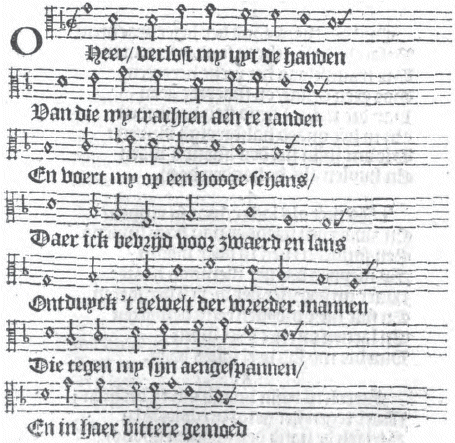 O Heer/ verlost my uyt de handen
Van die my trachten aen te randen
En voert my op een hooge schans/
Daer ick bevrijd voor zwaerd en lans
Ontduyck 't gewelt der wreeder mannen
Die tegen my sijn aengespannen/
En in haer bittere gemoed